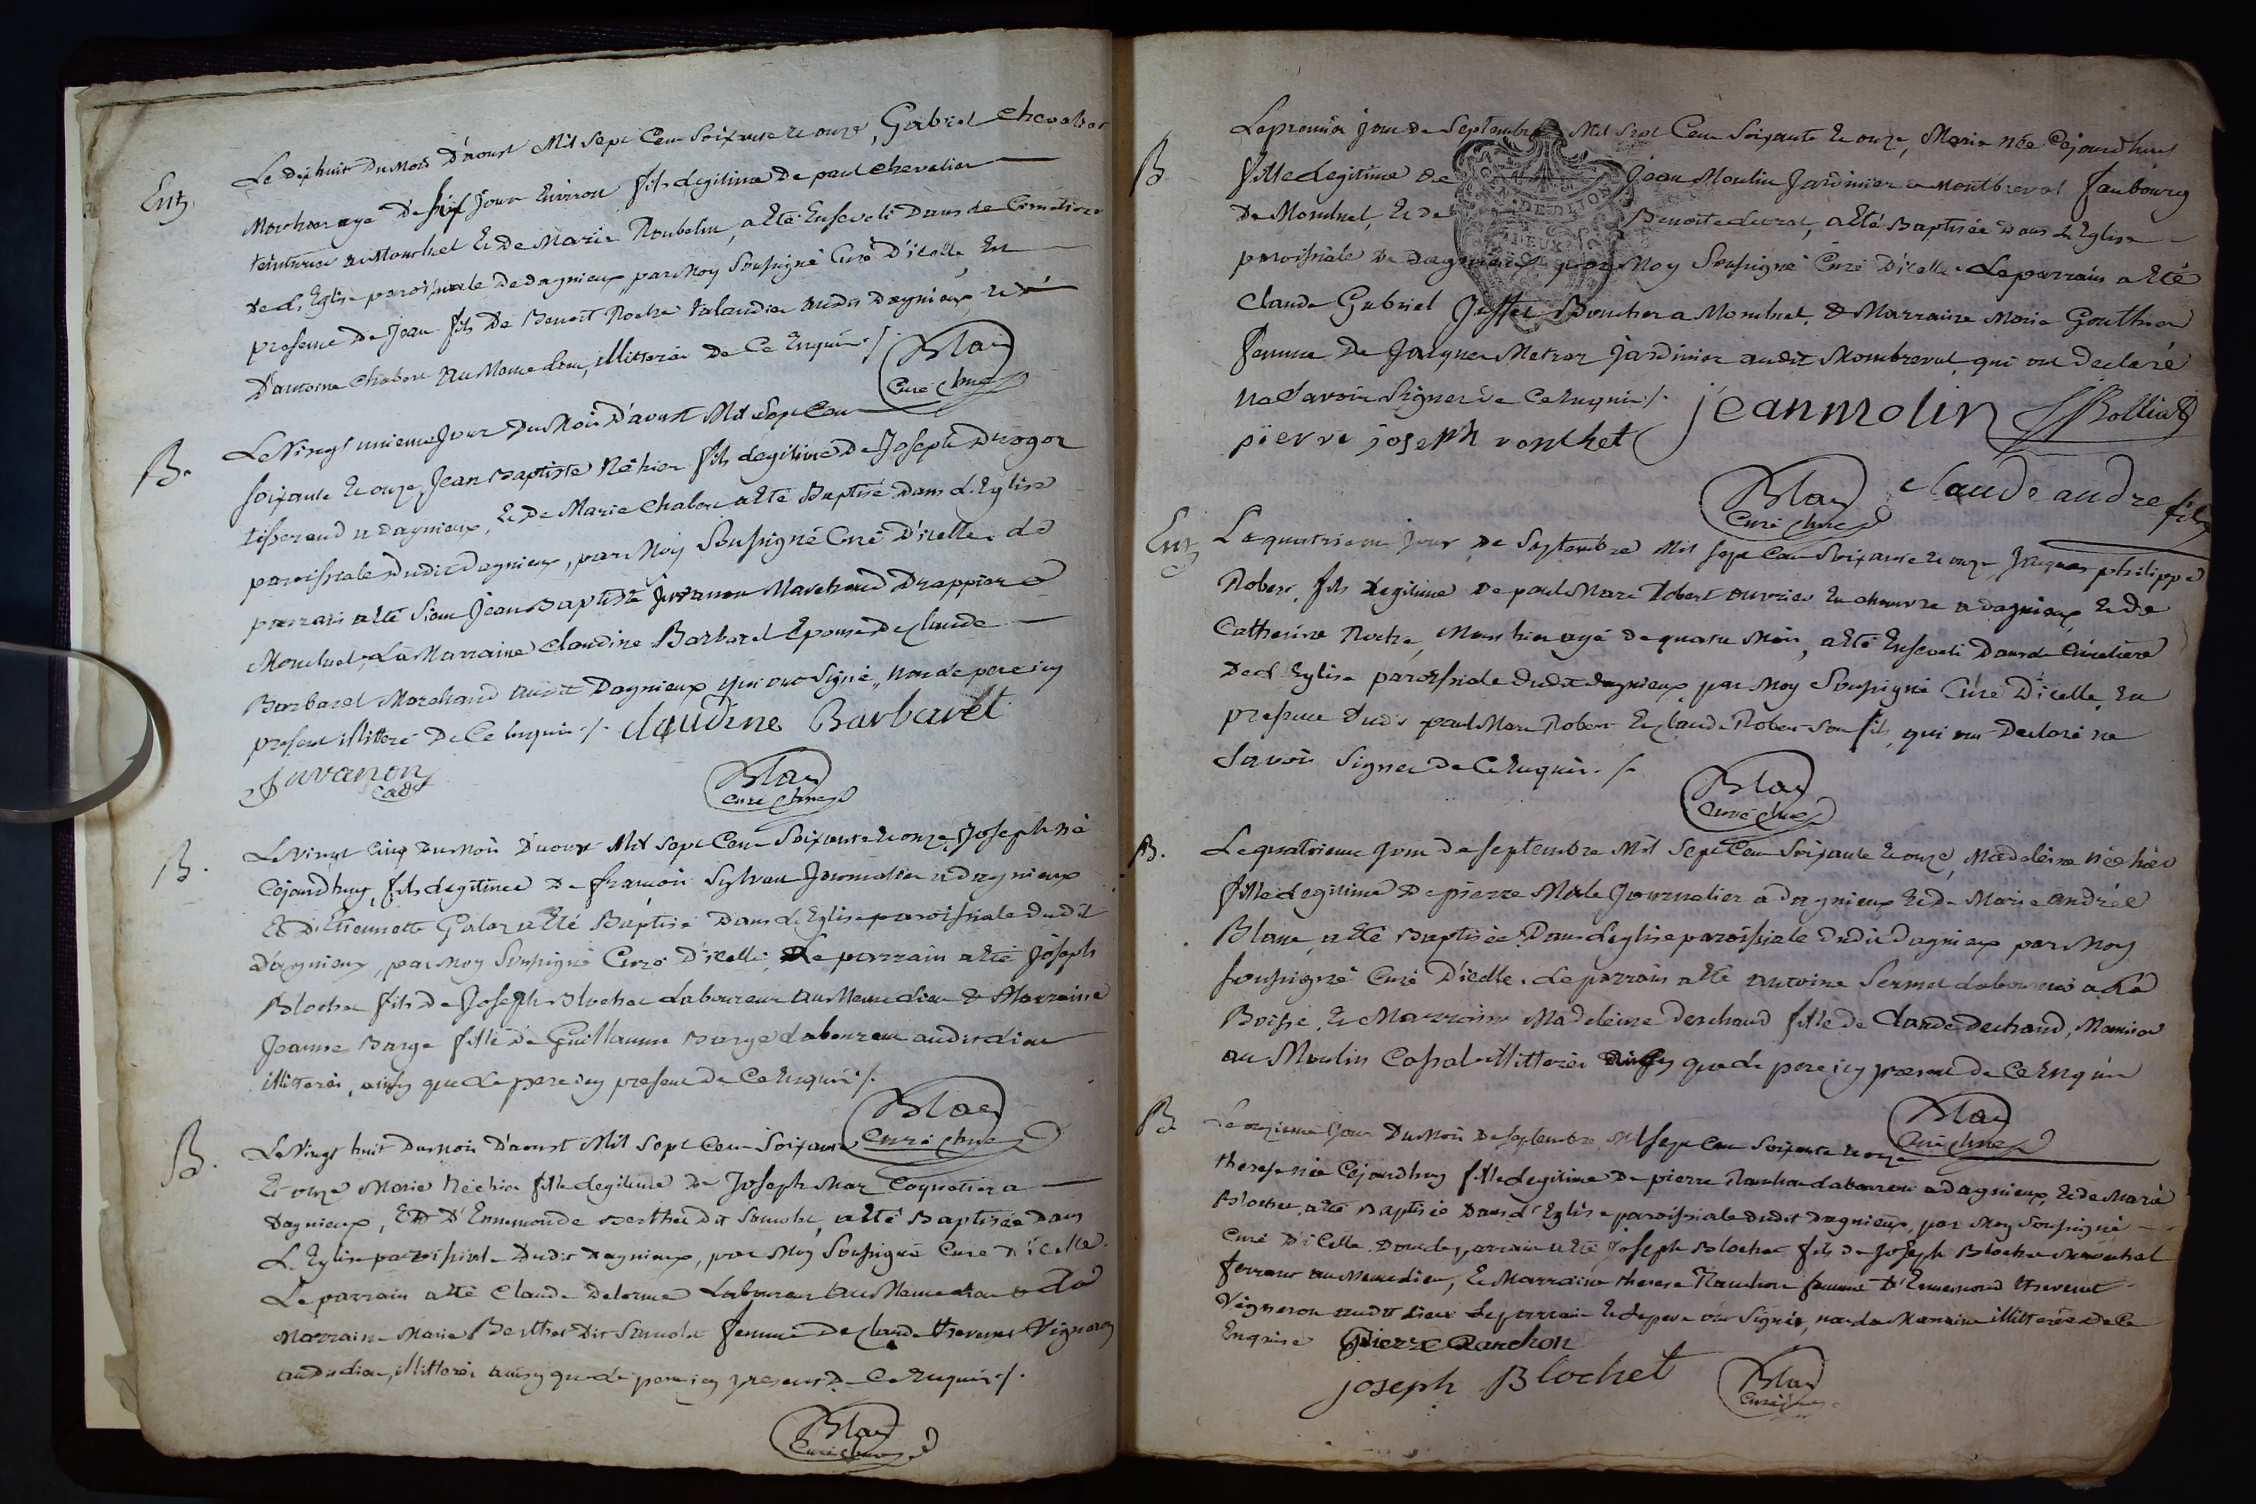 Ent.
Le dix huit du mois d'aoust Mil Sept Cent Soixante et onze, Gabriel Chevalier
Mort hier agé de six jours Environ fils legitime De paul Chevalier
teinturier a Montluel Et De Marie Roubelin, a Eté Enseveli Dans le Cimetiere
de l'Eglise paroissiale de dagnieux, par Moy Soussigné Curé D'icelle, En
presence De Jean fils De Benoit Roche audit dagnieux, et
D'antoine Chabert Au Meme lieu, illitterés De Ce Enquis /.
Blas
Curé
B.
Le Vingt unieme Jour Du Mois D'aoust Mil Sept Cent
Soixante Et onze, Jean Baptiste Né hier fils legitime De Joseph Drogoz
tisserand a dagnieux, Et De Marie Chabert a Eté Baptisé Dans L'Eglise
paroissiale Dudit Dagnieux, par Moy Soussigné Curé D'icelle. le
parrain a Eté Sieur Jean Baptiste Juvanon Marchand Drappier a
Montluel, La Marraine Claudine Barbaret Epouse De Claude
Barbaret Marchand audit Dagnieux qui ont Signé, non le pere icy
present illitteré De Ce Enquis /. Claudine Barbaret
Juvanon
cadt
Blas
curé
B.
Le Vingt Cinq Du Mois D'aoust Mil Sept Cent Soixante et onze, Joseph né
Cejourd'huy, fils legitime De francois Sylvan Journalier a dagnieux
Et D'Etiennette Galoz a Eté Baptisé Dans L'Eglise paroissiale Dudit
dagnieux, par Moy Soussigné Curé D'icelle, Le parrain a Eté Joseph
Blochet fils De Joseph Blochet Laboureur Au Meme lieu & Marraine
Jeanne Barge fille De Guillaume Barge laboureur audit lieu
illitterés, ainsy que Le pere icy present De Ce Enquis /.
Blas
Curé
B.
Le Vingt huit Du Mois D'aoust Mil Sept Cent Soixante
Et onze Marie Née hier fille legitime De Joseph Mar Coquetier a
Dagnieux, Et D'Ennemonde Berthet Dit Samolet, a Eté Baptisée Dans
L'Eglise paroissiale Dudit Dagnieux, par Moy Soussigné Curé D'icelle.
Le parrain a Eté Claude Delorme Laboureur Au Meme lieu & La
Marraine Marie Berthet Dit Samolet femme De Claude thevenet Vigneron
audit lieu, illitterés ainsy que le pere icy present De Ce Enquis /.
Blas
Curé
B
Le premier jour de Septembre Mil Sept Cent Soixante Et onze, Marie née Cejourd'huy
fille legitime De Jean Moulin Jardinier a Montbreval faubourg
De Montluel, Et De Benoite, a Eté Baptisée Dans L'Eglise
paroissiale De dagnieux par Moy Soussigné Curé D'icelle. Le parrain a Eté
Claude Gabriel Boucher a Montluel, & Marraine Marie Gouthier
femme De Jacques Metras jardinier audit Montbreval, qui ont Declaré
Ne Savoir Signer De Ce Enquis /. jean molin Bolliat
pierre joseph ronchet
Blas claude andre fils
Curé
Ent.
Le quatrieme jour De Septembre Mil Sept Cent Soixante et onze Jacques philippe
Robert, fils legitime De paul Marc Robert ouvrier En chanvre a dagnieux, Et De
Catherine Roche, Mort hier agé de quatre Mois, a Eté Enseveli Dans le Cimetiere
De L'Eglise paroissiale Dudit dagnieux par Moy Soussigné Curé D'icelle, En
presence Dudit paul Marc Robert Et Claude Robert Son fils, qui ont Declaré ne
Savoir Signer De Ce Enquis. /.
Blas
Curé
B.
Le quatrieme Jour De Septembre Mil Sept Cent Soixante Et onze, Madeleine née hier
fille legitime De pierre Male Journalier a Dagnieux Et De Marie andrée
Blanc, a Eté Baptisée Dans L'eglise paroissiale Dudit Dagnieux par Moy
Soussigné Curé D'icelle. Le parrain a Eté antoine Sermet laboureur a La
Boisse, Et Marraine Madeleine Deschand fille De Claude Dechand, Meunier
au Moulin Cassal illitterés ainsy que Le pere icy present De Ce Enquis
Blas
Curé
B
Le onzieme Jour Du Mois De Septembre Mil Sept Cent Soixante et onze
therese née Cejourd'huy fille legitime De pierre Ranchon laboureur a Dagnieux, Et De Marie
Blochet, a Eté Baptisée Dans L'Eglise paroissiale Dudit Dagnieux, par Moy Soussigné
Curé D'icelle Dont le parrain a Eté Joseph Blochet fils De Joseph Blochet Marechal
ferrant au Meme lieu, Et Marraine therese Ranchon femme D'Ennemond thevenet
Vigneron audit lieu Le parrain Et Le pere ont Signés, non La Marraine illitterée De Ce
Enquise Pierre Ranchon
joseph Blochet
Blas
Curé